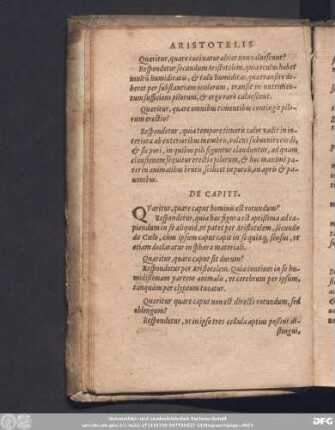 ARISTOTELIS
Quæritur, quare cæci natur aliter non caluescunt?
Respondetur secundum Aristotelem, quia oculus habet
multū humiditatis, & talis humiditas, quæ transire de
beret per substantiam oculorum, transit in nutrimen-
tum sufficiens pilorum, & ergo rarò caluescunt.
Quæritur, quare omnibus timentibus contingit pilo
rum erectio?
Respondetur, quia tempore timoris calor vadit in in-
teriora ab exterioribus membris, volens subuenire cordi,
& sic pori, in quibus pili figuntur clauduntur, ad quam
clausionem sequitur erectio pilorum, & hoc maximè pa-
tet in animalibus brutis, scilicet in porcis, in apris &
pauonibus.
DE CAPITE.
QVæritur, quare caput hominis est rotundum?
Respondetur, quia hæc figura est aptissima ad ca-
piendum in se aliquid, vt patet per Aristotelem, secundo
de Cœlo, cùm ipsum caput capit in se quinque sensus, vt
etiam declaratur in sphæra materiali.
Quæritur, quare caput sit durum?
Respondetur per Aristotelem. Quia continet in se hu-
midissimam partem animalis, vt cerebrum per ipsum,
tanquàm per clypeum tueatur.
Quæritur quare caput non est directè rotundum, sed
oblongum?
Respondetur, vt in ipso tres cellulæ aptius possent di-
stingui,